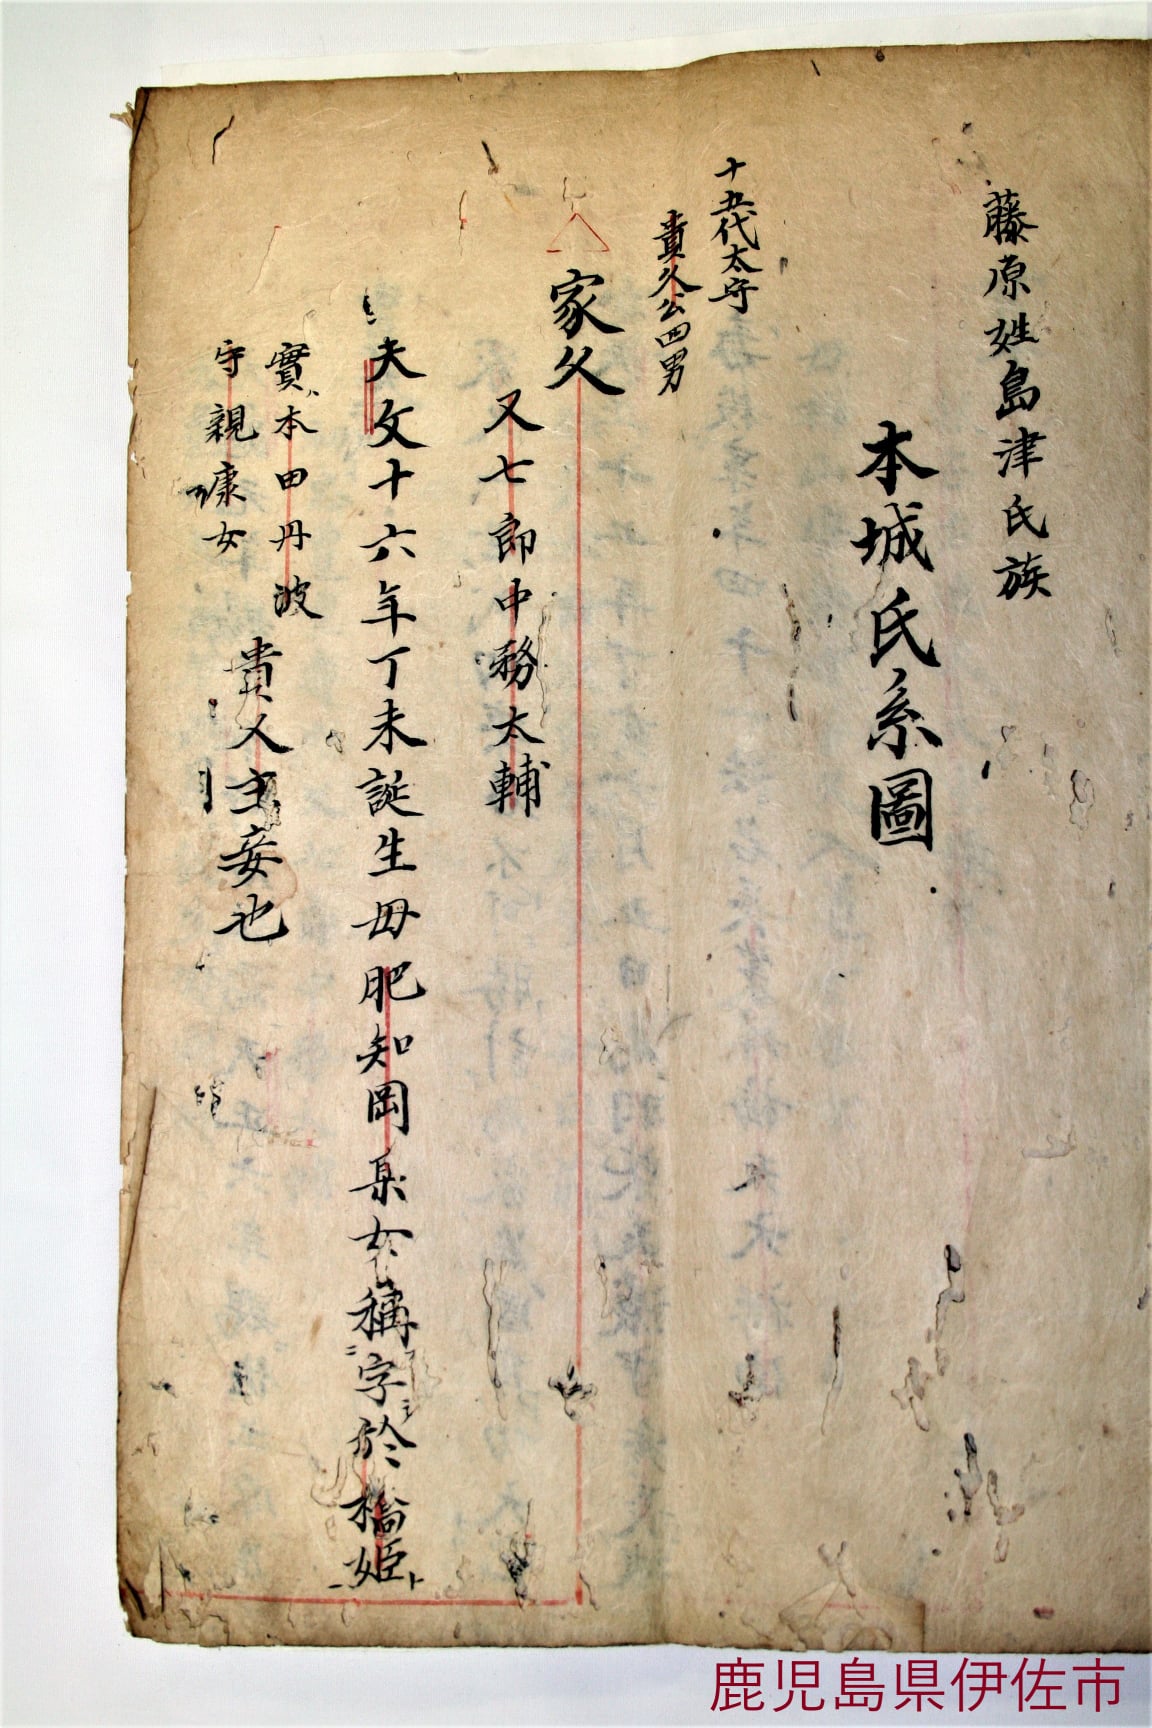 藤原姓島津氏族
本城氏系圖
十五代太守
貴久公四男
家久
又七郎中務太輔
天文十六年丁未誕生毋肥知岡某女稱字於橋姫
實ハ本田丹波
守親康女
貴久主妾也
鹿児島県伊佐市